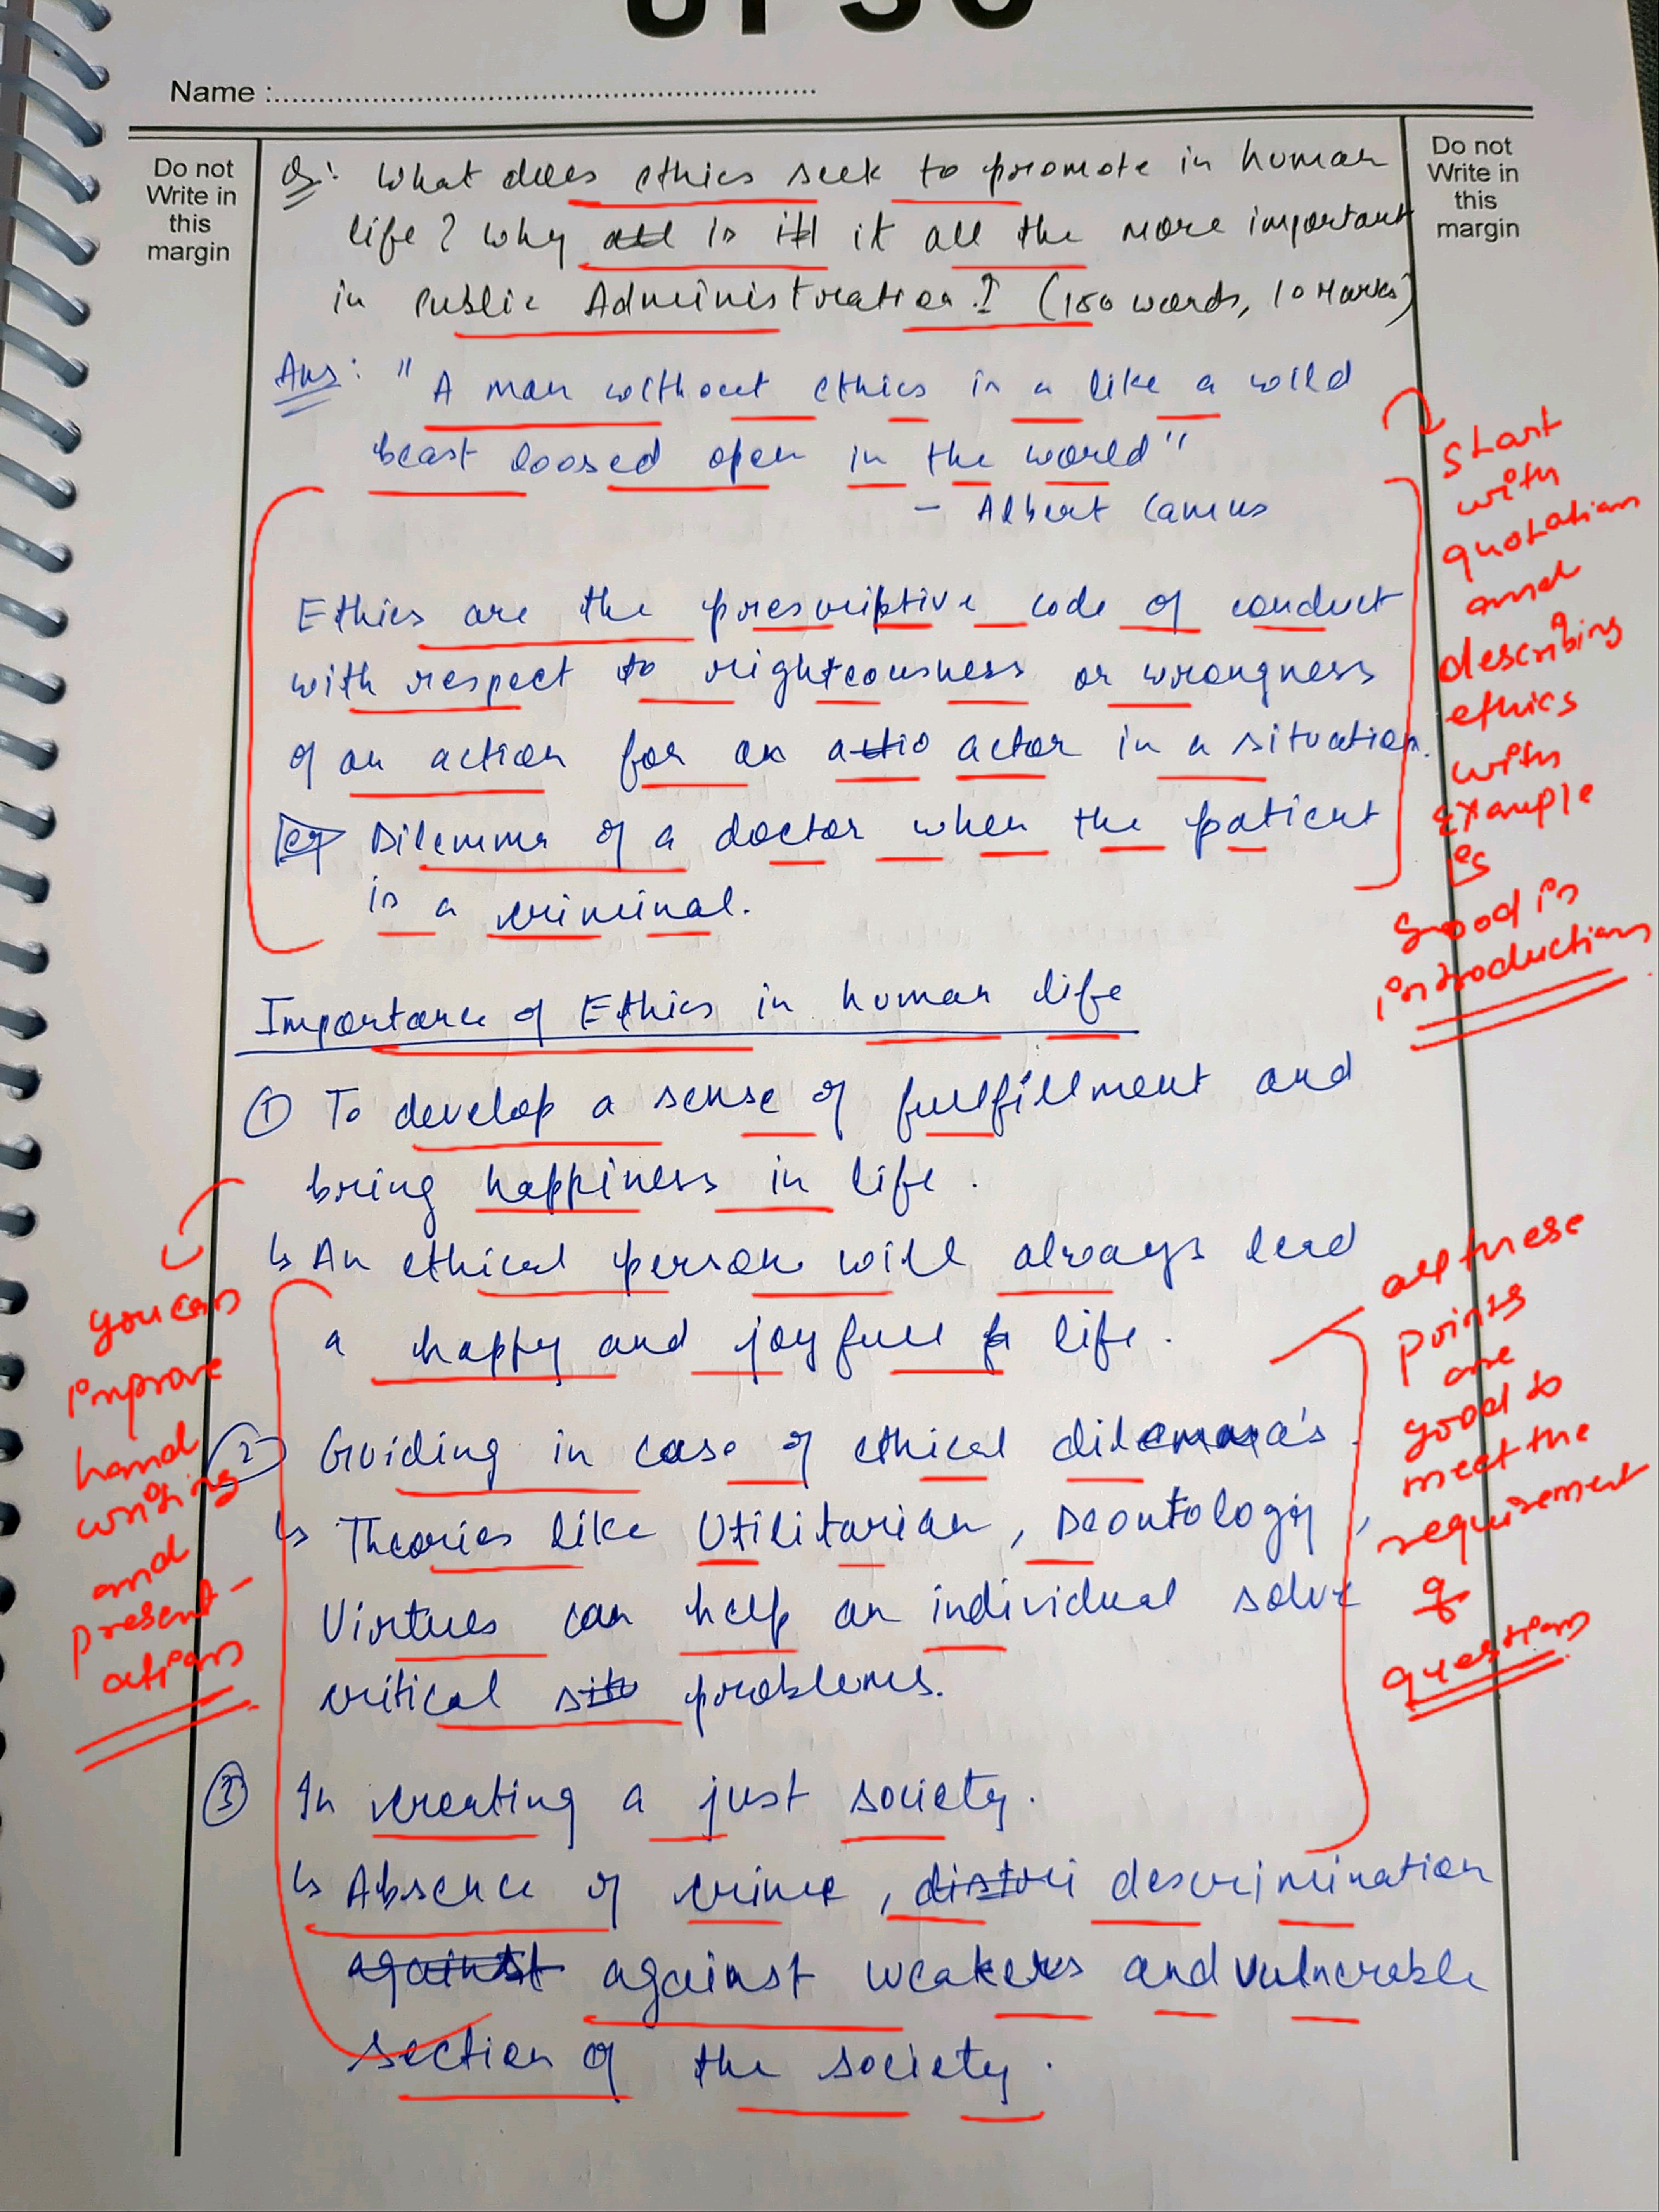 UPSC
Name :
Do not
Write in
this
margin
Do not
Write in
this
margin
Q: What does ethics seek to promote in human
life? Why all is it it all the more important
in Public Administration? (150 words, 10 Marks)
Ans: "A man without ethics is a like a wild
beast loosed open in the world"
- Albert Camus
Ethics are the prescriptive code of conduct
with respect to righteousness or wrongness
of an action for an actio actor in a situation.
eg Dilemma of a doctor when the patient
is a criminal.
start
with
quotation
and
describing
ethics
with
Example
is
good in
introduction
Importance of Ethics in human life
① To develop a sense of fullfillment and
bring happiness in life.
↳ An ethical person will always lead
a happy and joyfull life.
② Guiding in case of ethical dilemma's.
↳ Theories like Utilitarian, Deontology,
Virtues can help an individual solve
critical sit problems.
③ In creating a just society.
↳ Absence of crime, distri descrimination
against against weakers and vulnerable
section of the society.
you can
improve
hand
writing
and
present-
ation
all these
points
are
good to
meet the
requirement
of
question